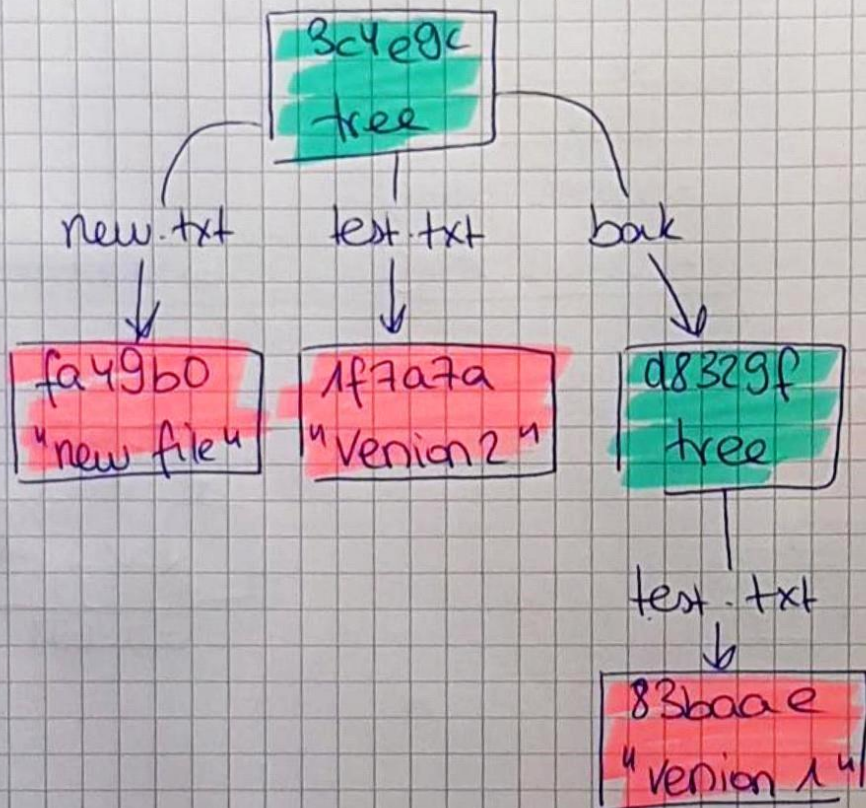 3c4e9c
tree
new.txt
test.txt
bak
fa49b0
"new file"
1f7a7a
"version 2"
d8329f
tree
test.txt
83baae
"version 1"